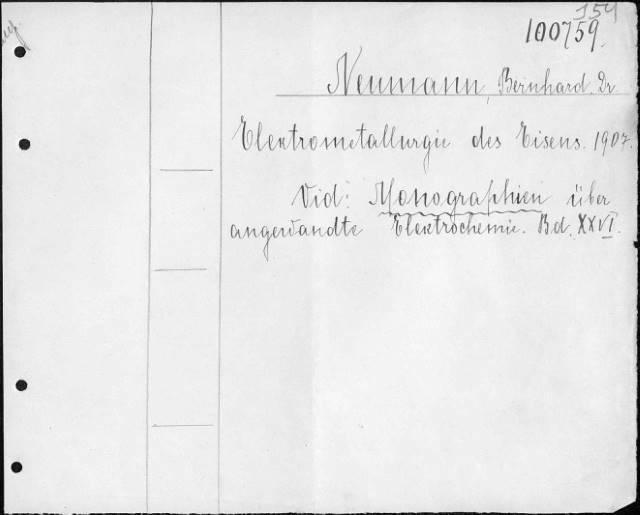 154
100759.
Neumann, Bernhard. Dr
Elektrometallurgie des Eisens. 1907.
Vid: Monographien über
angewandte Elektrochemie. Bd. XXVI.